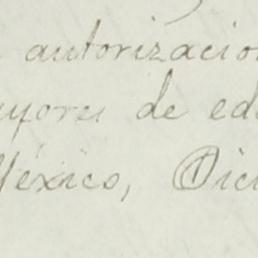 autorizacion
ayores de eda
México, Dici